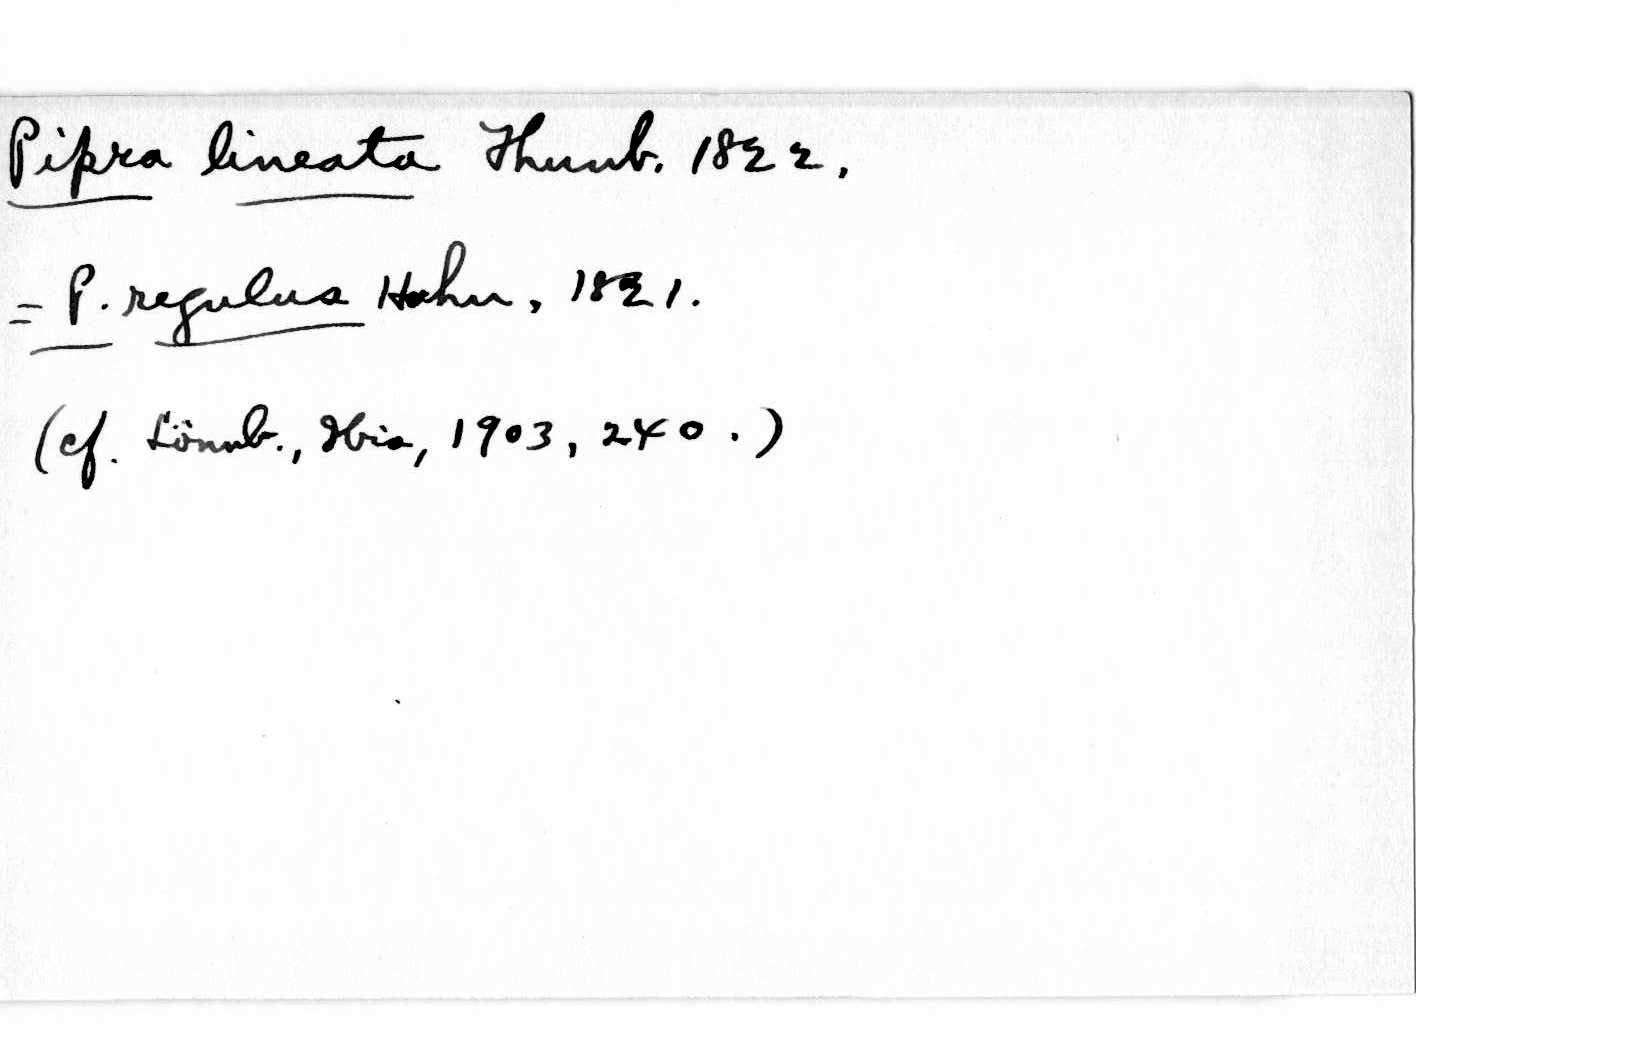 Pipra lineata Thunb. 1822.
= P. regulus Hahn, 1821.
(cf. Lönnb., Ibis, 1903, 240.)